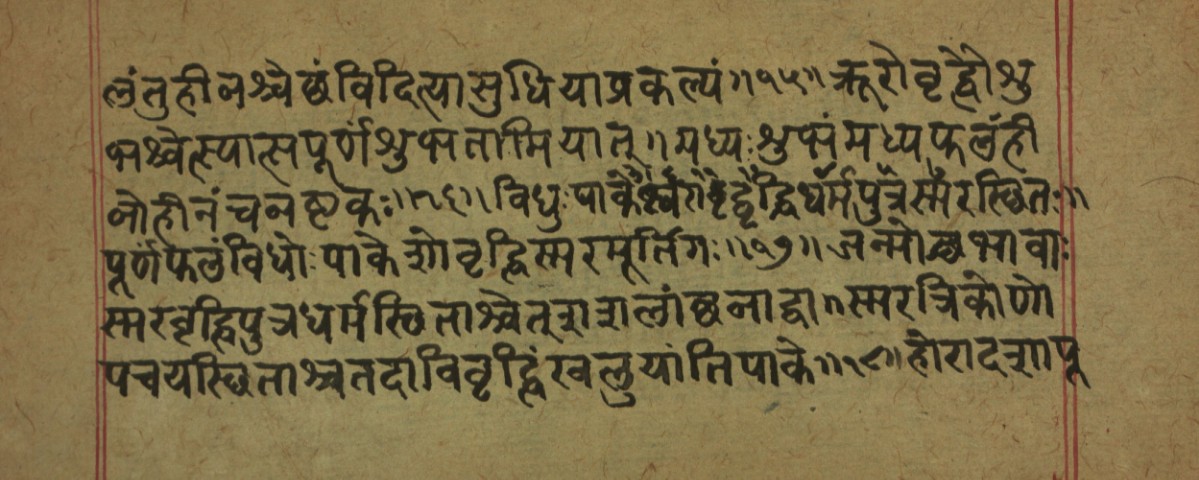 लंतुहीनश्चेष्ठंविदित्यासुधियाप्रकल्प्यं॥१५॥क्रूरोवृद्दौशु
भश्चेत्स्यात्सपूर्णशुभतामियात्॥मध्यःशुभंमध्यफलंही
नोहीनंचनष्टकः॥१६॥विधुःपाके द्धिधर्मपुत्रस्मरस्थितः॥
पूर्णफलंविधोःपाकेशोवृद्धिस्मरमूर्तिगः॥१७॥जन्मोत्थभावाः
स्मरवृद्धिपुत्रधर्मस्थिताश्चेत् लांछनाद्वा॥स्मरत्रिकोणो
पचयस्थिताश्चतदाविवृद्धिंखलुयांतिपाके॥१८॥होरादशापू